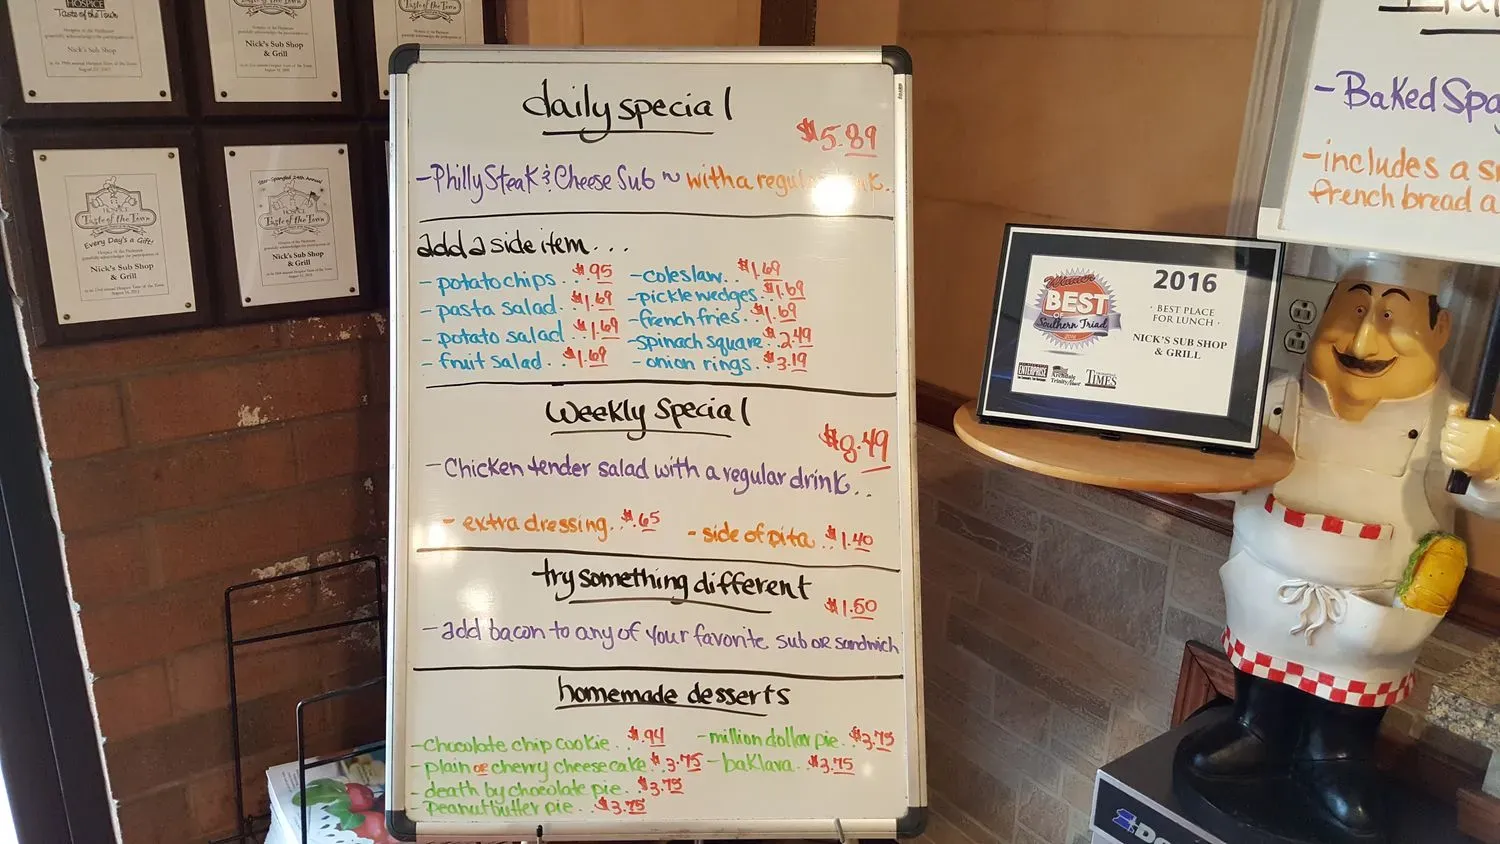 HOSPICE
Taste of the Town
Nick's Sub Shop
Nick's Sub Shop
& Grill
HOSPICE
Taste of the Town
Every Day's a Gift!
Nick's Sub Shop
& Grill
Star-Spangled 24th Annual
HOSPICE
Taste of the Town
Nick's Sub Shop
& Grill
daily special
$5.89
- Philly Steak & Cheese Sub ~ with a regular
add a side item...
- potato chips.. $.95
- pasta salad.. $1.69
- potato salad. $1.69
- fruit salad.. $1.69
- coleslaw.. $1.69
- pickle wedges. $1.69
- french fries.. $1.69
- spinach square.. $2.49
- onion rings.. $3.19
weekly special
$8.49
- Chicken tender salad with a regular drink..
- extra dressing. $.65
- side of pita.. $1.40
try something different
$1.50
- add bacon to any of your favorite sub or sandwich
homemade desserts
- chocolate chip cookie.. $.94
- plain or cherry cheesecake. $3.75
- death by chocolate pie. $3.75
- Peanutbutter pie.. $3.75
- million dollar pie.. $3.75
- baklava.. $3.75
Winner
BEST
OF
Southern Triad
2016
2016
· BEST PLACE
FOR LUNCH ·
NICK'S SUB SHOP
& GRILL
ENTERPRISE
Archdale
Trinity News
TIMES
- Baked Spa
- includes a s
french bread a